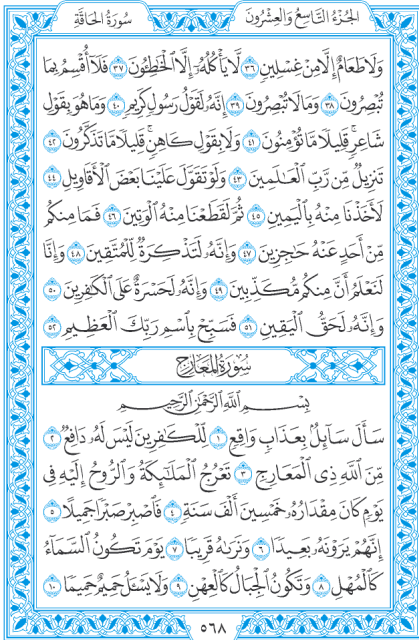 الجزء التاسع والعشرون سورة الحاقة
وَلَا طَعَامٌ إِلَّا مِنْ غِسْلِينٍ ٣٦ لَّا يَأْكُلُهُۥٓ إِلَّا ٱلْخَـٰطِـُٔونَ ٣٧ فَلَآ أُقْسِمُ بِمَا
تُبْصِرُونَ ٣٨ وَمَا لَا تُبْصِرُونَ ٣٩ إِنَّهُۥ لَقَوْلُ رَسُولٍ كَرِيمٍ ٤٠ وَمَا هُوَ بِقَوْلِ
شَاعِرٍ ۚ قَلِيلًا مَّا تُؤْمِنُونَ ٤١ وَلَا بِقَوْلِ كَاهِنٍ ۚ قَلِيلًا مَّا تَذَكَّرُونَ ٤٢
تَنزِيلٌ مِّن رَّبِّ ٱلْعَـٰلَمِينَ ٤٣ وَلَوْ تَقَوَّلَ عَلَيْنَا بَعْضَ ٱلْأَقَاوِيلِ ٤٤
لَأَخَذْنَا مِنْهُ بِٱلْيَمِينِ ٤٥ ثُمَّ لَقَطَعْنَا مِنْهُ ٱلْوَتِينَ ٤٦ فَمَا مِنكُم
مِّنْ أَحَدٍ عَنْهُ حَـٰجِزِينَ ٤٧ وَإِنَّهُۥ لَتَذْكِرَةٌ لِّلْمُتَّقِينَ ٤٨ وَإِنَّا
لَنَعْلَمُ أَنَّ مِنكُم مُّكَذِّبِينَ ٤٩ وَإِنَّهُۥ لَحَسْرَةٌ عَلَى ٱلْكَـٰفِرِينَ ٥٠
وَإِنَّهُۥ لَحَقُّ ٱلْيَقِينِ ٥١ فَسَبِّحْ بِٱسْمِ رَبِّكَ ٱلْعَظِيمِ ٥٢
سورة المعارج
بِسْمِ ٱللَّهِ ٱلرَّحْمَـٰنِ ٱلرَّحِيمِ
سَأَلَ سَآئِلٌۢ بِعَذَابٍ وَاقِعٍ ١ لِّلْكَـٰفِرِينَ لَيْسَ لَهُۥ دَافِعٌ ٢
مِّنَ ٱللَّهِ ذِى ٱلْمَعَارِجِ ٣ تَعْرُجُ ٱلْمَلَـٰٓئِكَةُ وَٱلرُّوحُ إِلَيْهِ فِى
يَوْمٍ كَانَ مِقْدَارُهُۥ خَمْسِينَ أَلْفَ سَنَةٍ ٤ فَٱصْبِرْ صَبْرًا جَمِيلًا ٥
إِنَّهُمْ يَرَوْنَهُۥ بَعِيدًا ٦ وَنَرَىٰهُ قَرِيبًا ٧ يَوْمَ تَكُونُ ٱلسَّمَآءُ
كَٱلْمُهْلِ ٨ وَتَكُونُ ٱلْجِبَالُ كَٱلْعِهْنِ ٩ وَلَا يَسْـَٔلُ حَمِيمٌ حَمِيمًا ١٠
٥٦٨